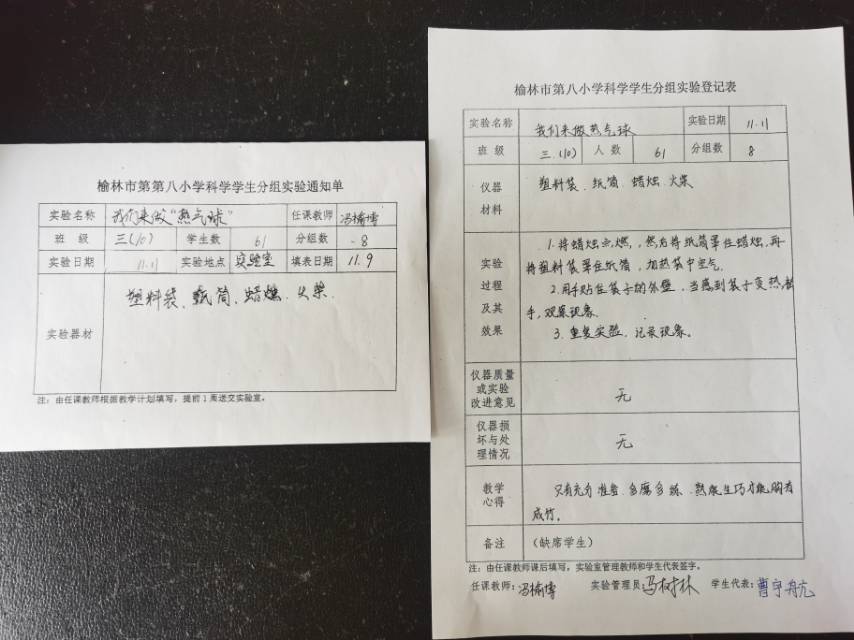 榆林市第第八小学科学学生分组实验通知单
实验名称 我们来做"热气球" 任课教师 冯楠博
班 级 三(10) 学生数 61 分组数 8
实验日期 11.11 实验地点 实验室 填表日期 11.9
实验器材 塑料袋、纸筒、蜡烛、火柴.
注:由任课教师根据教学计划填写,提前1周送交实验室。
榆林市第八小学科学学生分组实验登记表
实验名称 我们来做热气球 实验日期 11.11
班 级 三.(10) 人 数 61 分组数 8
仪器
材料
塑料袋、纸筒、蜡烛、火柴
实验
过程
及其
效果
1.将蜡烛点燃,然后将纸筒罩住蜡烛,再
将塑料袋罩住纸筒,加热袋中空气.
2.用手贴住袋子的外壁,当感到袋子变热,松
手,观察现象.
3.重复实验,记录现象。
仪器质量
或实验
改进意见
无
仪器损
坏与处
理情况
无
教学
心得
只有充分准备.多磨多练、熟能生巧才能胸有
成竹。
备注 (缺席学生)
注:由任课教师课后填写,实验室管理教师和学生代表签字。
任课教师:冯楠博 实验管理员:冯树林 学生代表:曹宇航